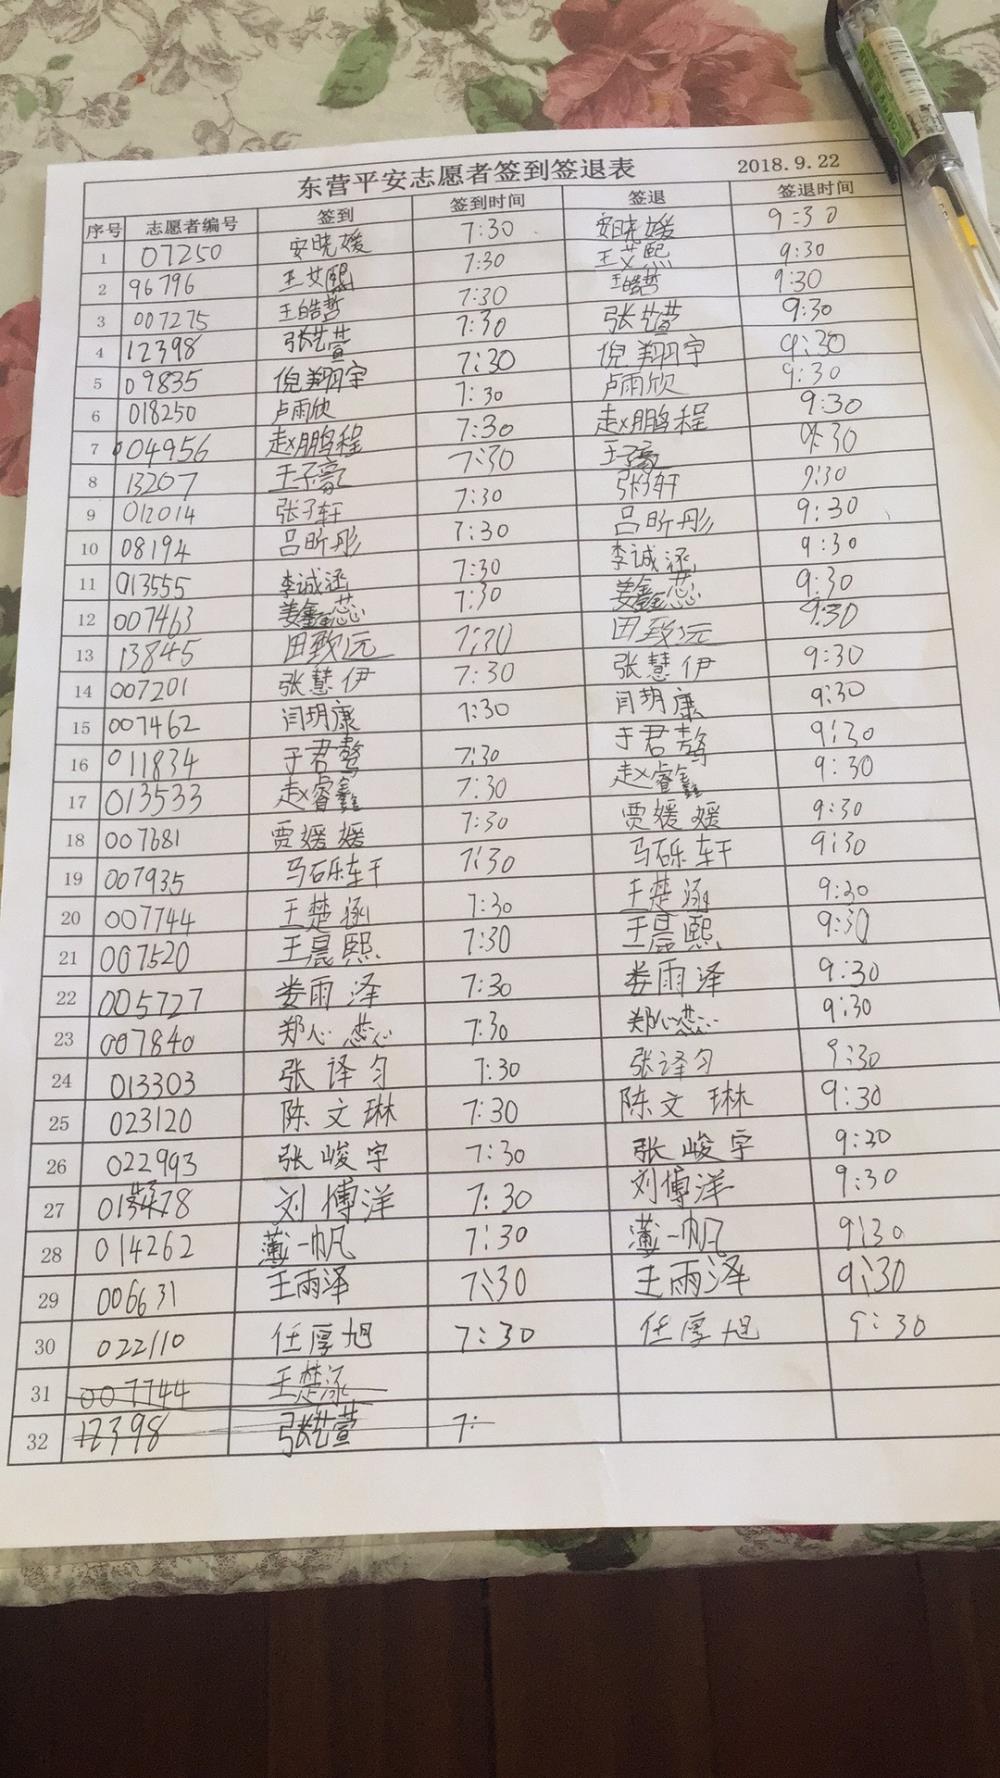 东营平安志愿者签到签退表 2018.9.22
序号 志愿者编号 签到 签到时间 签退 签退时间
1 07250 安晓媛 7:30 安晓媛 9:30
2 96796 王艾熙 7:30 王艾熙 9:30
3 007275 王皓哲 7:30 王皓哲 9:30
4 12398 张艺萱 7:30 张艺萱 9:30
5 09835 倪翔宇 7:30 倪翔宇 9:30
6 018250 卢雨欣 7:30 卢雨欣 9:30
7 004956 赵鹏程 7:30 赵鹏程 9:30
8 13207 王子豪 7:30 王子豪 9:30
9 012014 张子轩 7:30 张子轩 9:30
10 08194 吕昕彤 7:30 吕昕彤 9:30
11 013555 李诚涵 7:30 李诚涵 9:30
12 007463 姜鑫蕊 7:30 姜鑫蕊 9:30
13 13845 田致远 7:30 田致远 9:30
14 007201 张慧伊 7:30 张慧伊 9:30
15 007462 闫玥康 7:30 闫玥康 9:30
16 011834 于君骜 7:30 于君骜 9:30
17 013533 赵睿鑫 7:30 赵睿鑫 9:30
18 007681 贾媛媛 7:30 贾媛媛 9:30
19 007935 马砾轩 7:30 马砾轩 9:30
20 007744 王楚涵 7:30 王楚涵 9:30
21 007520 王晨熙 7:30 王晨熙 9:30
22 005727 娄雨泽 7:30 娄雨泽 9:30
23 007840 郑心蕊 7:30 郑心蕊 9:30
24 013303 张译匀 7:30 张译匀 9:30
25 023120 陈文琳 7:30 陈文琳 9:30
26 022993 张峻宇 7:30 张峻宇 9:30
27 刘博洋 7:30 刘博洋 9:30
28 014262 薄一帆 7:30 薄一帆 9:30
29 006631 王雨泽 7:30 王雨泽 9:30
30 022110 任厚旭 7:30 任厚旭 9:30
31 007744 王楚涵
32 12398 张艺萱 7: